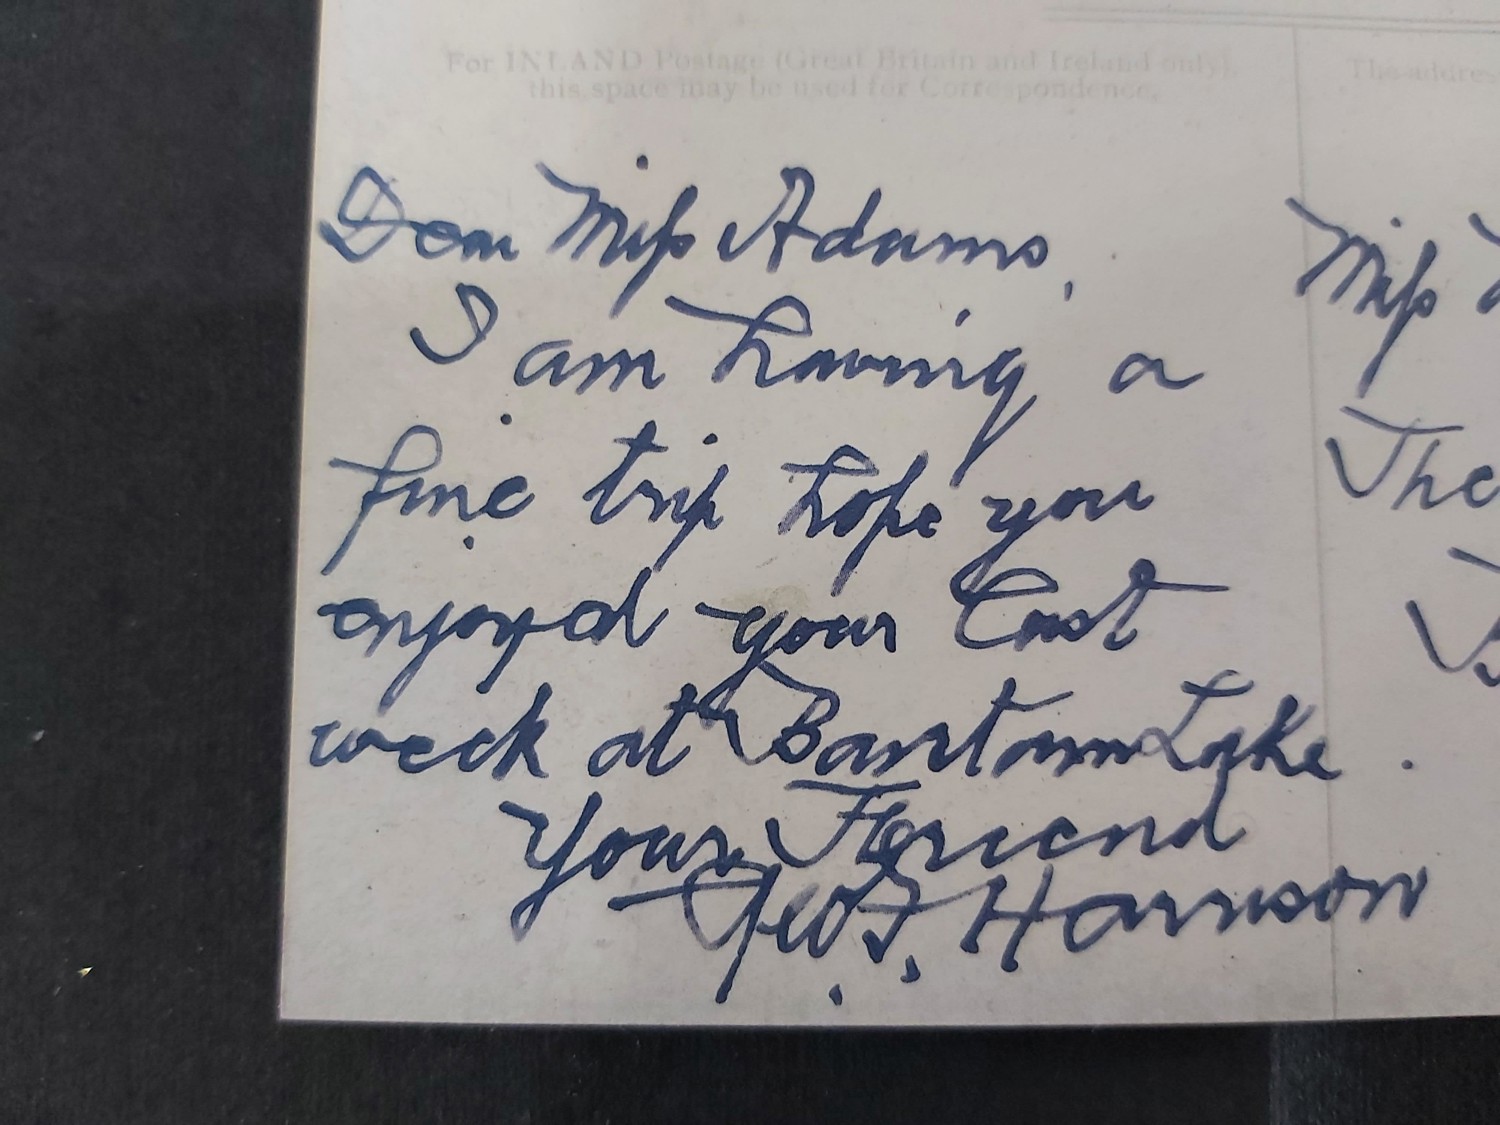 For INLAND Postage (Great Britain and Ireland only),
this space may be used for Correspondence.
The addres
Dear Miss Adams,
I am having a
fine trip hope you
enjoyed your last
week at Bantam Lake.
Your Friend
Harrison
Miss
The